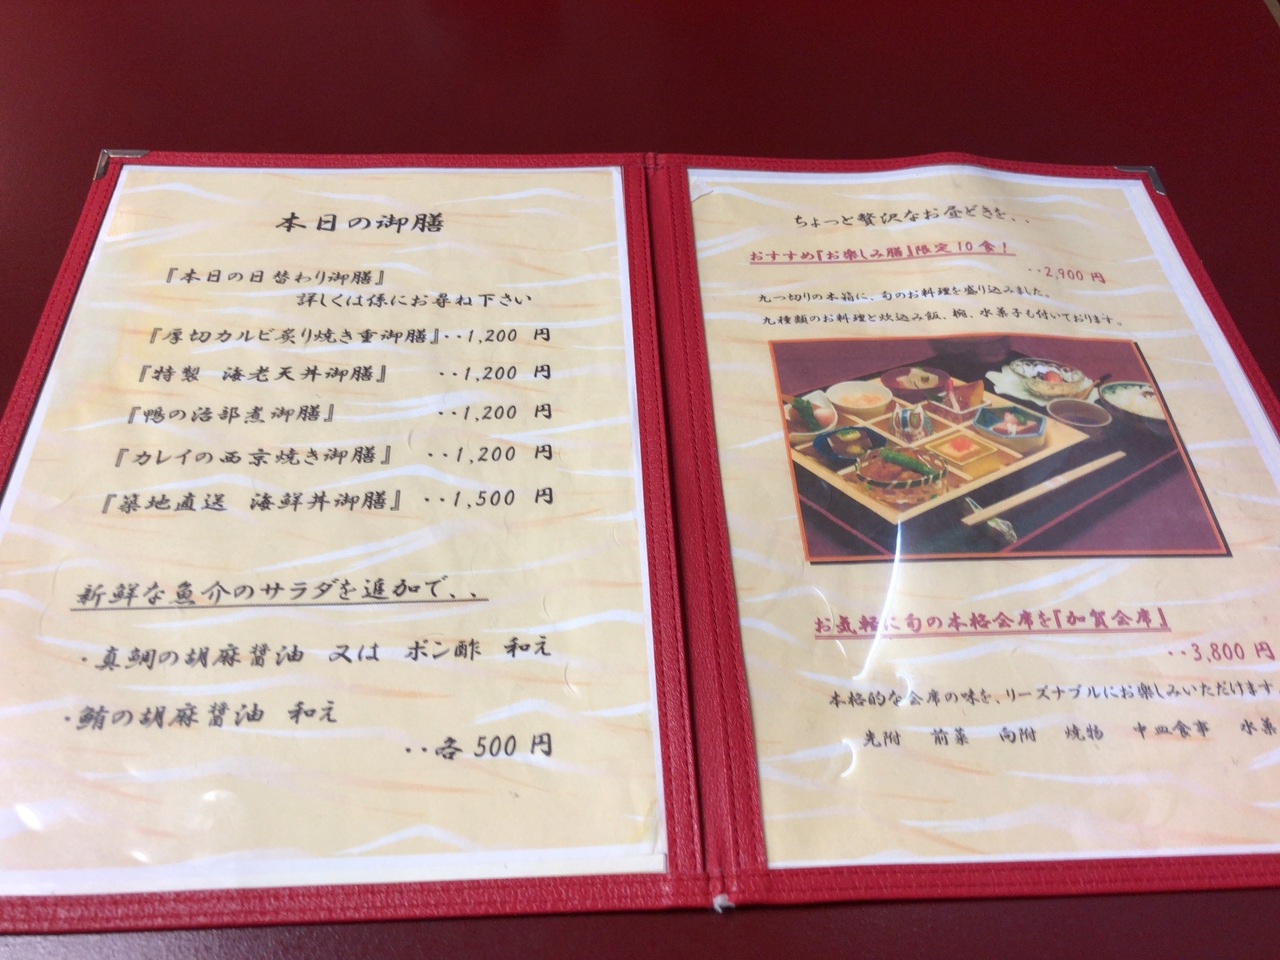 本日の御膳
『本日の日替わり御膳』
詳しくは係にお尋ね下さい
『厚切カルビ炙り焼き重御膳』‥1,200 円
『特製 海老天丼御膳』 ‥1,200 円
『鴨の治部煮御膳』 ‥1,200 円
『カレイの西京焼き御膳』 ‥1,200 円
『築地直送 海鮮丼御膳』 ‥1,500 円
新鮮な魚介のサラダを追加で、、
・真鯛の胡麻醤油 又は ポン酢 和え
・鮪の胡麻醤油 和え
‥各 500 円
ちょっと贅沢なお昼どきを、、
おすすめ『お楽しみ膳』限定10食！
‥2,900 円
九つ切りの木箱に、旬のお料理を盛り込みました。
九種類のお料理と炊込み飯、椀、水菓子も付いております。
お気軽に旬の本格会席を『加賀会席』
‥3,800 円
本格的な会席の味を、リーズナブルにお楽しみいただけます。
先附 前菜 向附 焼物 中皿 食事 水菓